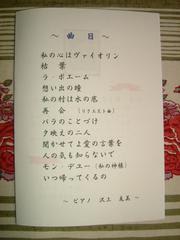 ～ 曲 目 ～
私の心はヴァイオリン
枯 葉
ラ・ボエーム
想い出の瞳
私の村は水の底
再 会 (リクエスト曲)
バラのことづけ
夕映えの二人
聞かせてよ愛の言葉を
人の気も知らないで
モン・デュー (私の神様)
いつ帰ってくるの
～ ピアノ 沢上 友美 ～